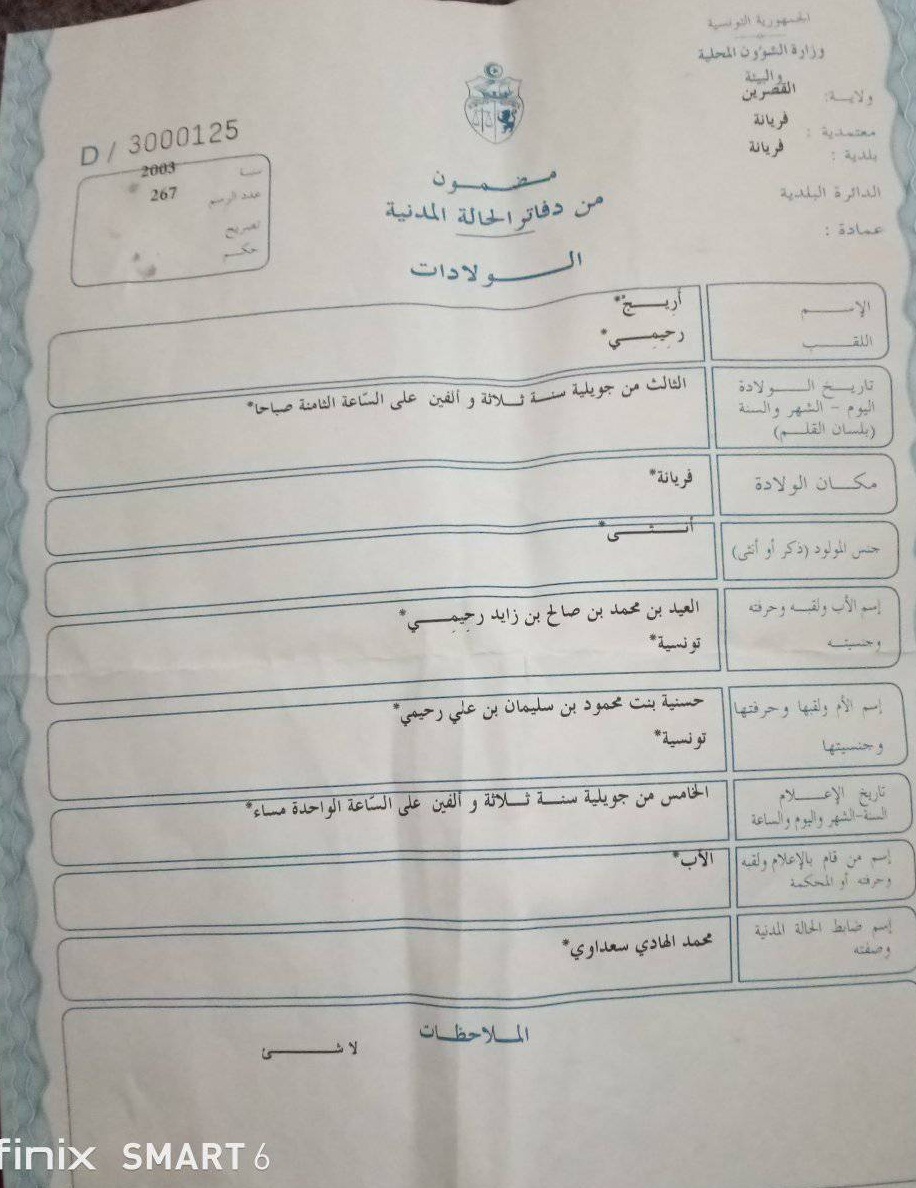 الجمهورية التونسية
وزارة الشؤون المحلية
والبيئة
ولاية: القصرين
معتمدية : فريانة
بلدية : فريانة
الدائرة البلدية
عمادة :
D / 3000125
سنة 2003
عدد الرسم 267
تصريح
حكم
مضمون
من دفاتر الحالة المدنية
الولادات
الإسم أريج*
اللقب رحيمي*
تاريخ الولادة
اليوم - الشهر والسنة
(بلسان القلم)
الثالث من جويلية سنة ثلاثة و ألفين على السّاعة الثامنة صباحا*
مكان الولادة فريانة*
جنس المولود (ذكر أو أنثى) أنثى*
إسم الأب ولقبه وحرفته
وجنسيته
العيد بن محمد بن صالح بن زايد رحيمي*
تونسية*
إسم الأم ولقبها وحرفتها
وجنسيتها
حسنية بنت محمود بن سليمان بن علي رحيمي*
تونسية*
تاريخ الإعلام
السنة-الشهر واليوم والساعة
الخامس من جويلية سنة ثلاثة و ألفين على السّاعة الواحدة مساء*
إسم من قام بالإعلام ولقبه
وحرفته أو المحكمة
الأب*
إسم ضابط الحالة المدنية
وصفته
محمد الهادي سعداوي*
الملاحظات
لا شئ
finix SMART 6